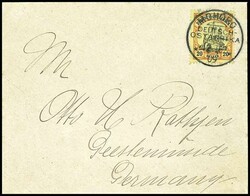 MOHORO
DEUTSCH-
OSTAFRIKA
20 20
M
Otto H Rathjen
Geestemünde
Germany